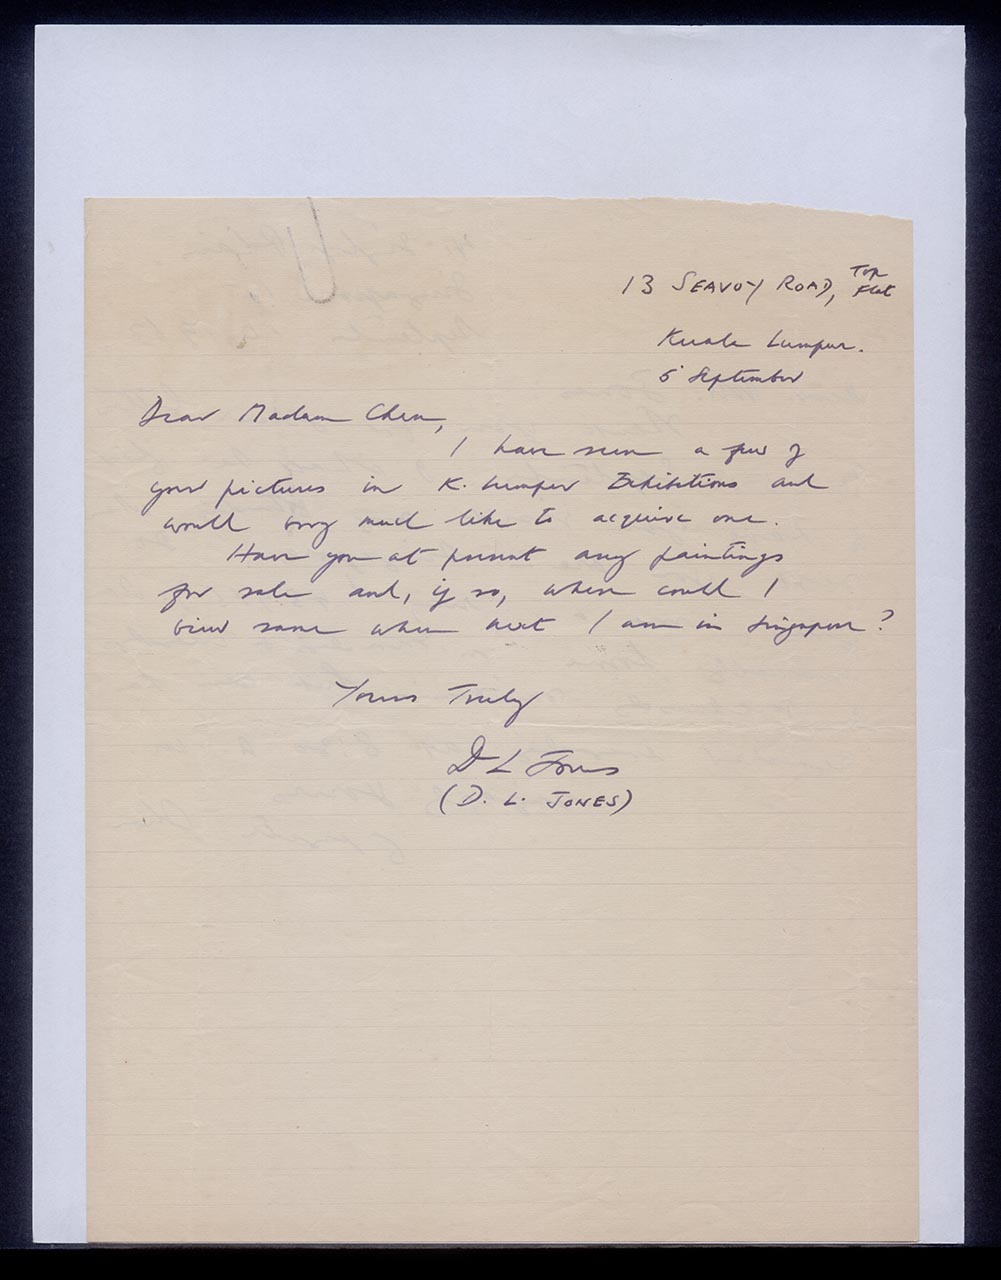 13 SEAVOY ROAD, Top Flat
Kuala Lumpur.
5 September
Dear Madam Chen,
I have seen a few of
your pictures in K. Lumpur Exhibitions and
would very much like to acquire one.
Have you at present any paintings
for sale and, if so, where could I
view same when next I am in Singapore?
Yours Truly
D L Jones
(D. L. JONES)